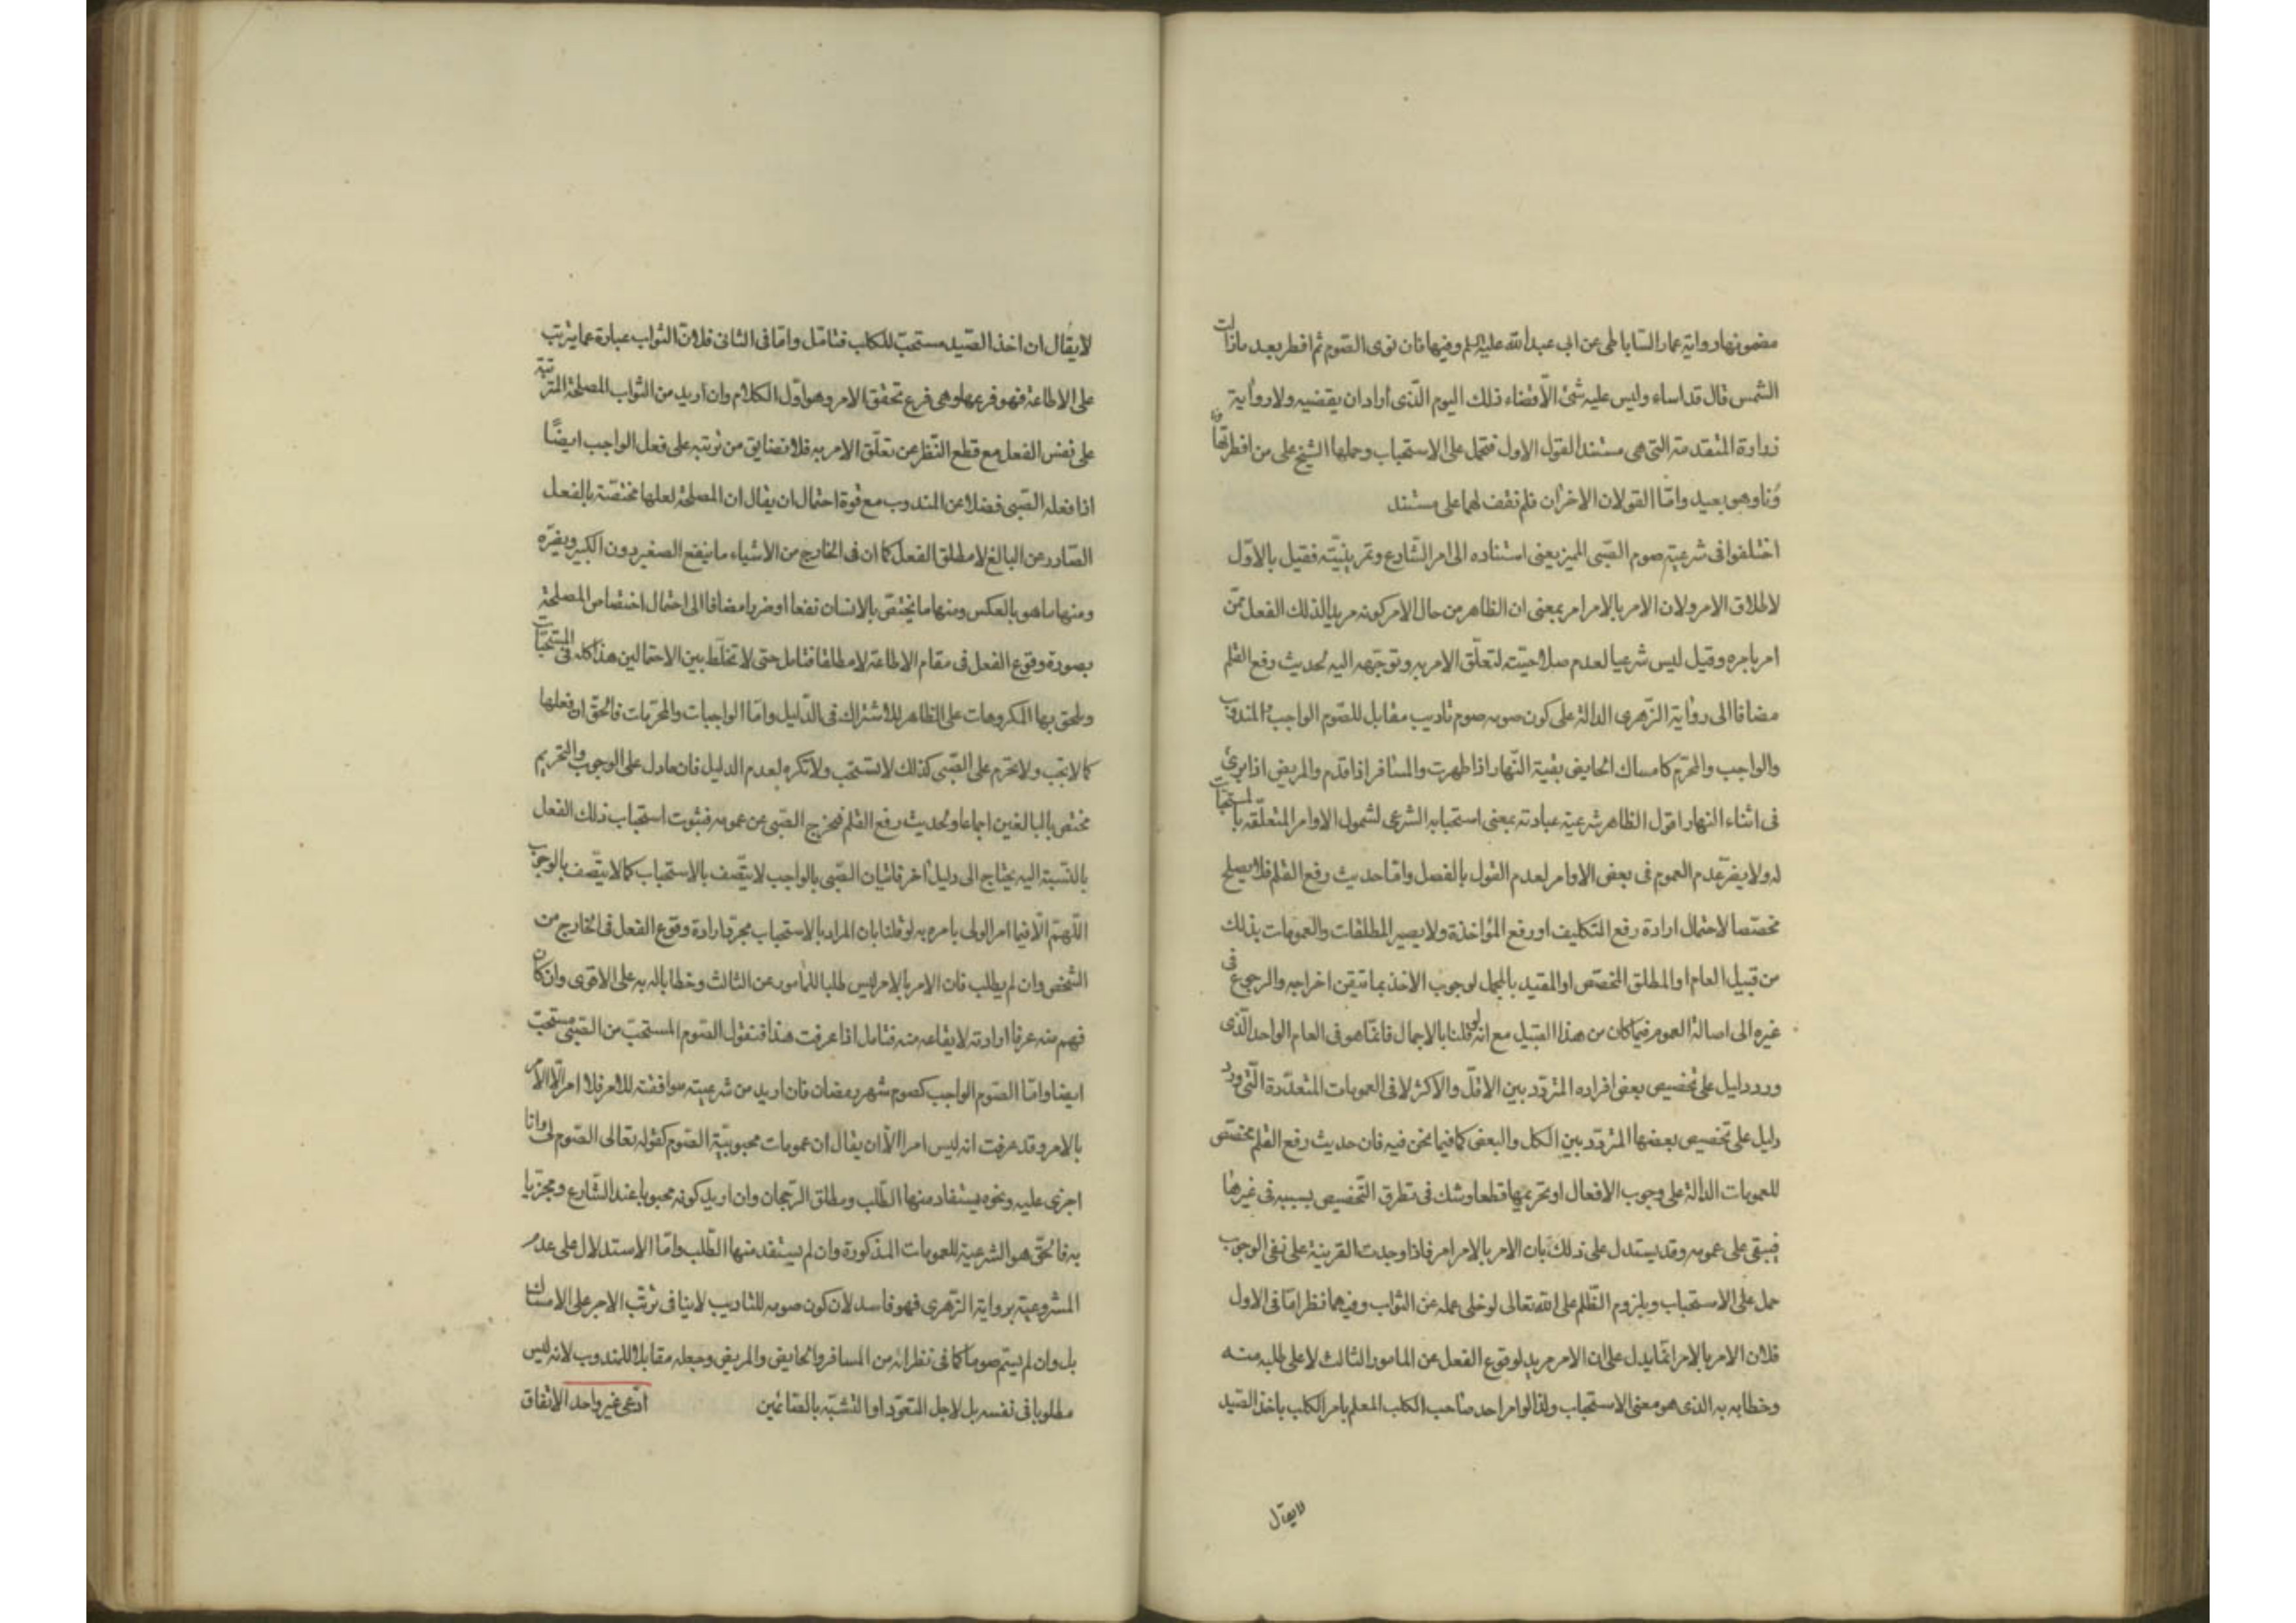 مضمونها رواية عمار الساباطى عن ابى عبد الله عليه السلم وفيها فان نوى الصوم ثم افطر بعد ما زالت
الشمس قال قد اساء وليس عليه شئ الا قضاء ذلك اليوم الذى اراد ان يقضيه ولا رواية
زرارة المتقدمة التى هى مستند القول الاول فتحمل على الاستحباب وحملها الشيخ على من افطر تهاونا
وهو بعيد واما القولان الاخران فلم نقف لهما على مستند
اختلفوا فى شرعية صوم الصبى المميز يعنى استناده الى امر الشارع وتمرينيته فقيل بالاول
لاطلاق الامر ولان الامر بالامر امر بمعنى ان الظاهر من حال الامر كونه مريدا لذلك الفعل ممن
امر بامره وقيل ليس شرعيا لعدم صلاحيته لتعلق الامر به وتوجهه اليه لحديث رفع القلم
مضافا الى رواية الزهرى الدالة على كون صومه صوم تاديب مقابل للصوم الواجب المندوب
والواجب والمحرم كامساك الحايض بقية النهار اذا طهرت والمسافر اذا قدم والمريض اذا برئ
فى اثناء النهار اقول الظاهر شرعية عبادته بمعنى استحبابه الشرعى لشمول الاوامر المتعلقة بالمستحبات
له ولا يضر عدم العموم فى بعض الاوامر لعدم القول بالفصل واما حديث رفع القلم فلا يصلح
مخصصا لاحتمال ارادة رفع التكليف او رفع المؤاخذة ولا يصير المطلقات والعمومات بذلك
من قبيل العام او المطلق المخصص او المقيد بالمجمل لوجوب الاخذ بما تيقن اخراجه والرجوع فى
غيره الى اصالة العموم فيما كان من هذا القبيل مع انه لو قلنا بالاجمال فانما هو فى العام الواحد الذى
ورد دليل على تخصيص بعض افراده المتردد بين الاقل والاكثر لا فى العمومات المتعددة التى ورد
دليل على تخصيص بعضها المتردد بين الكل والبعض كما فيما نحن فيه فان حديث رفع القلم مخصص
للعمومات الدالة على وجوب الافعال او تحريمها قطعا وشك فى تطرق التخصيص بسببه فى غيرها
فيبقى على عمومه وقد يستدل على ذلك بان الامر بالامر امر فاذا وجدت القرينة على نفى الوجوب
حمل على الاستحباب ويلزوم الظلم على الله تعالى لو خلى عمله عن الثواب وفيهما نظر اما فى الاول
فلان الامر بالامر انما يدل على ان الامر مريد لوقوع الفعل عن المامور الثالث لا على طلبه منه
وخطابه به الذى هو معنى الاستحباب ولذا لو امر احد صاحب الكلب المعلم بامر الكلب باخذ الصيد
لا يقال
لا يقال ان اخذ الصيد مستحب للكلب فتامل واما فى الثانى فلان الثواب عبارة عما يترتب
على الاطاعة فهو فرعها وهى فرع تحقق الامر وهو اول الكلام وان اريد من الثواب المصلحة المترتبة
على نفس الفعل مع قطع النظر عن تعلق الامر به فلا نضايق من ترتبه على فعل الواجب ايضا
اذا فعله الصبى فضلا عن المندوب مع قوة احتمال ان يقال ان المصلحة لعلها مختصة بالفعل
الصادر عن البالغ لا مطلق الفعل كما ان فى الخارج من الاشياء ما ينفع الصغير دون الكبير ويضره
ومنها ما هو بالعكس ومنها ما يختص بالانسان نفعا او ضررا مضافا الى احتمال اختصاص المصلحة
بصورة وقوع الفعل فى مقام الاطاعة لا مطلقا فتامل حتى لا تخلط بين الاحتمالين هذا كله فى المستحبات
ويلحق بها المكروهات على الظاهر للاشتراك فى الدليل واما الواجبات والمحرمات فالحق ان فعلها
كما لا يجب ولا يحرم على الصبى كذلك لا يستحب ولا تكره لعدم الدليل فان ما دل على الوجوب والتحريم
مختص بالبالغين اجماعا ولحديث رفع القلم فيخرج الصبى عن عمومه فثبوت استحباب ذلك الفعل
بالنسبة اليه يحتاج الى دليل اخر فاتيان الصبى بالواجب لا يتصف بالاستحباب كما لا يتصف بالوجوب
اللهم الا فيما امر الولى بامره به لو قلنا بان المراد بالاستحباب مجرد ارادة وقوع الفعل فى الخارج من
الشخص وان لم يطلب فان الامر بالامر ليس طلبا للمامور عن الثالث وخطابا له به على الاقوى وان كان
فهم منه عرفا ارادته لايقاعه منه فتامل اذا عرفت هذا فنقول الصوم المستحب من الصبى مستحب
ايضا واما الصوم الواجب كصوم شهر رمضان فان اريد من شرعيته موافقته للامر فلا امر الا الامر
بالامر وقد عرفت انه ليس امرا الا ان يقال ان عمومات محبوبية الصوم كقوله تعالى الصوم لى وانا
اجزى عليه ونحوه يستفاد منها الطلب ومطلق الرجحان وان اريد كونه محبوبا عند الشارع ومجزيا
به فالحق هو الشرعية للعمومات المذكورة وان لم يستفد منها الطلب واما الاستدلال على عدم
المشروعية برواية الزهرى فهو فاسد لان كون صومه للتاديب لا ينافى ترتب الاجر على الامساك
بل وان لم يتم صوما كما فى نظرائه من المسافر والحايض والمريض وجعله مقابلا للمندوب لانه ليس
مطلوبا فى نفسه بل لاجل التعود او التشبه بالصائمين ادعى غير واحد الاتفاق